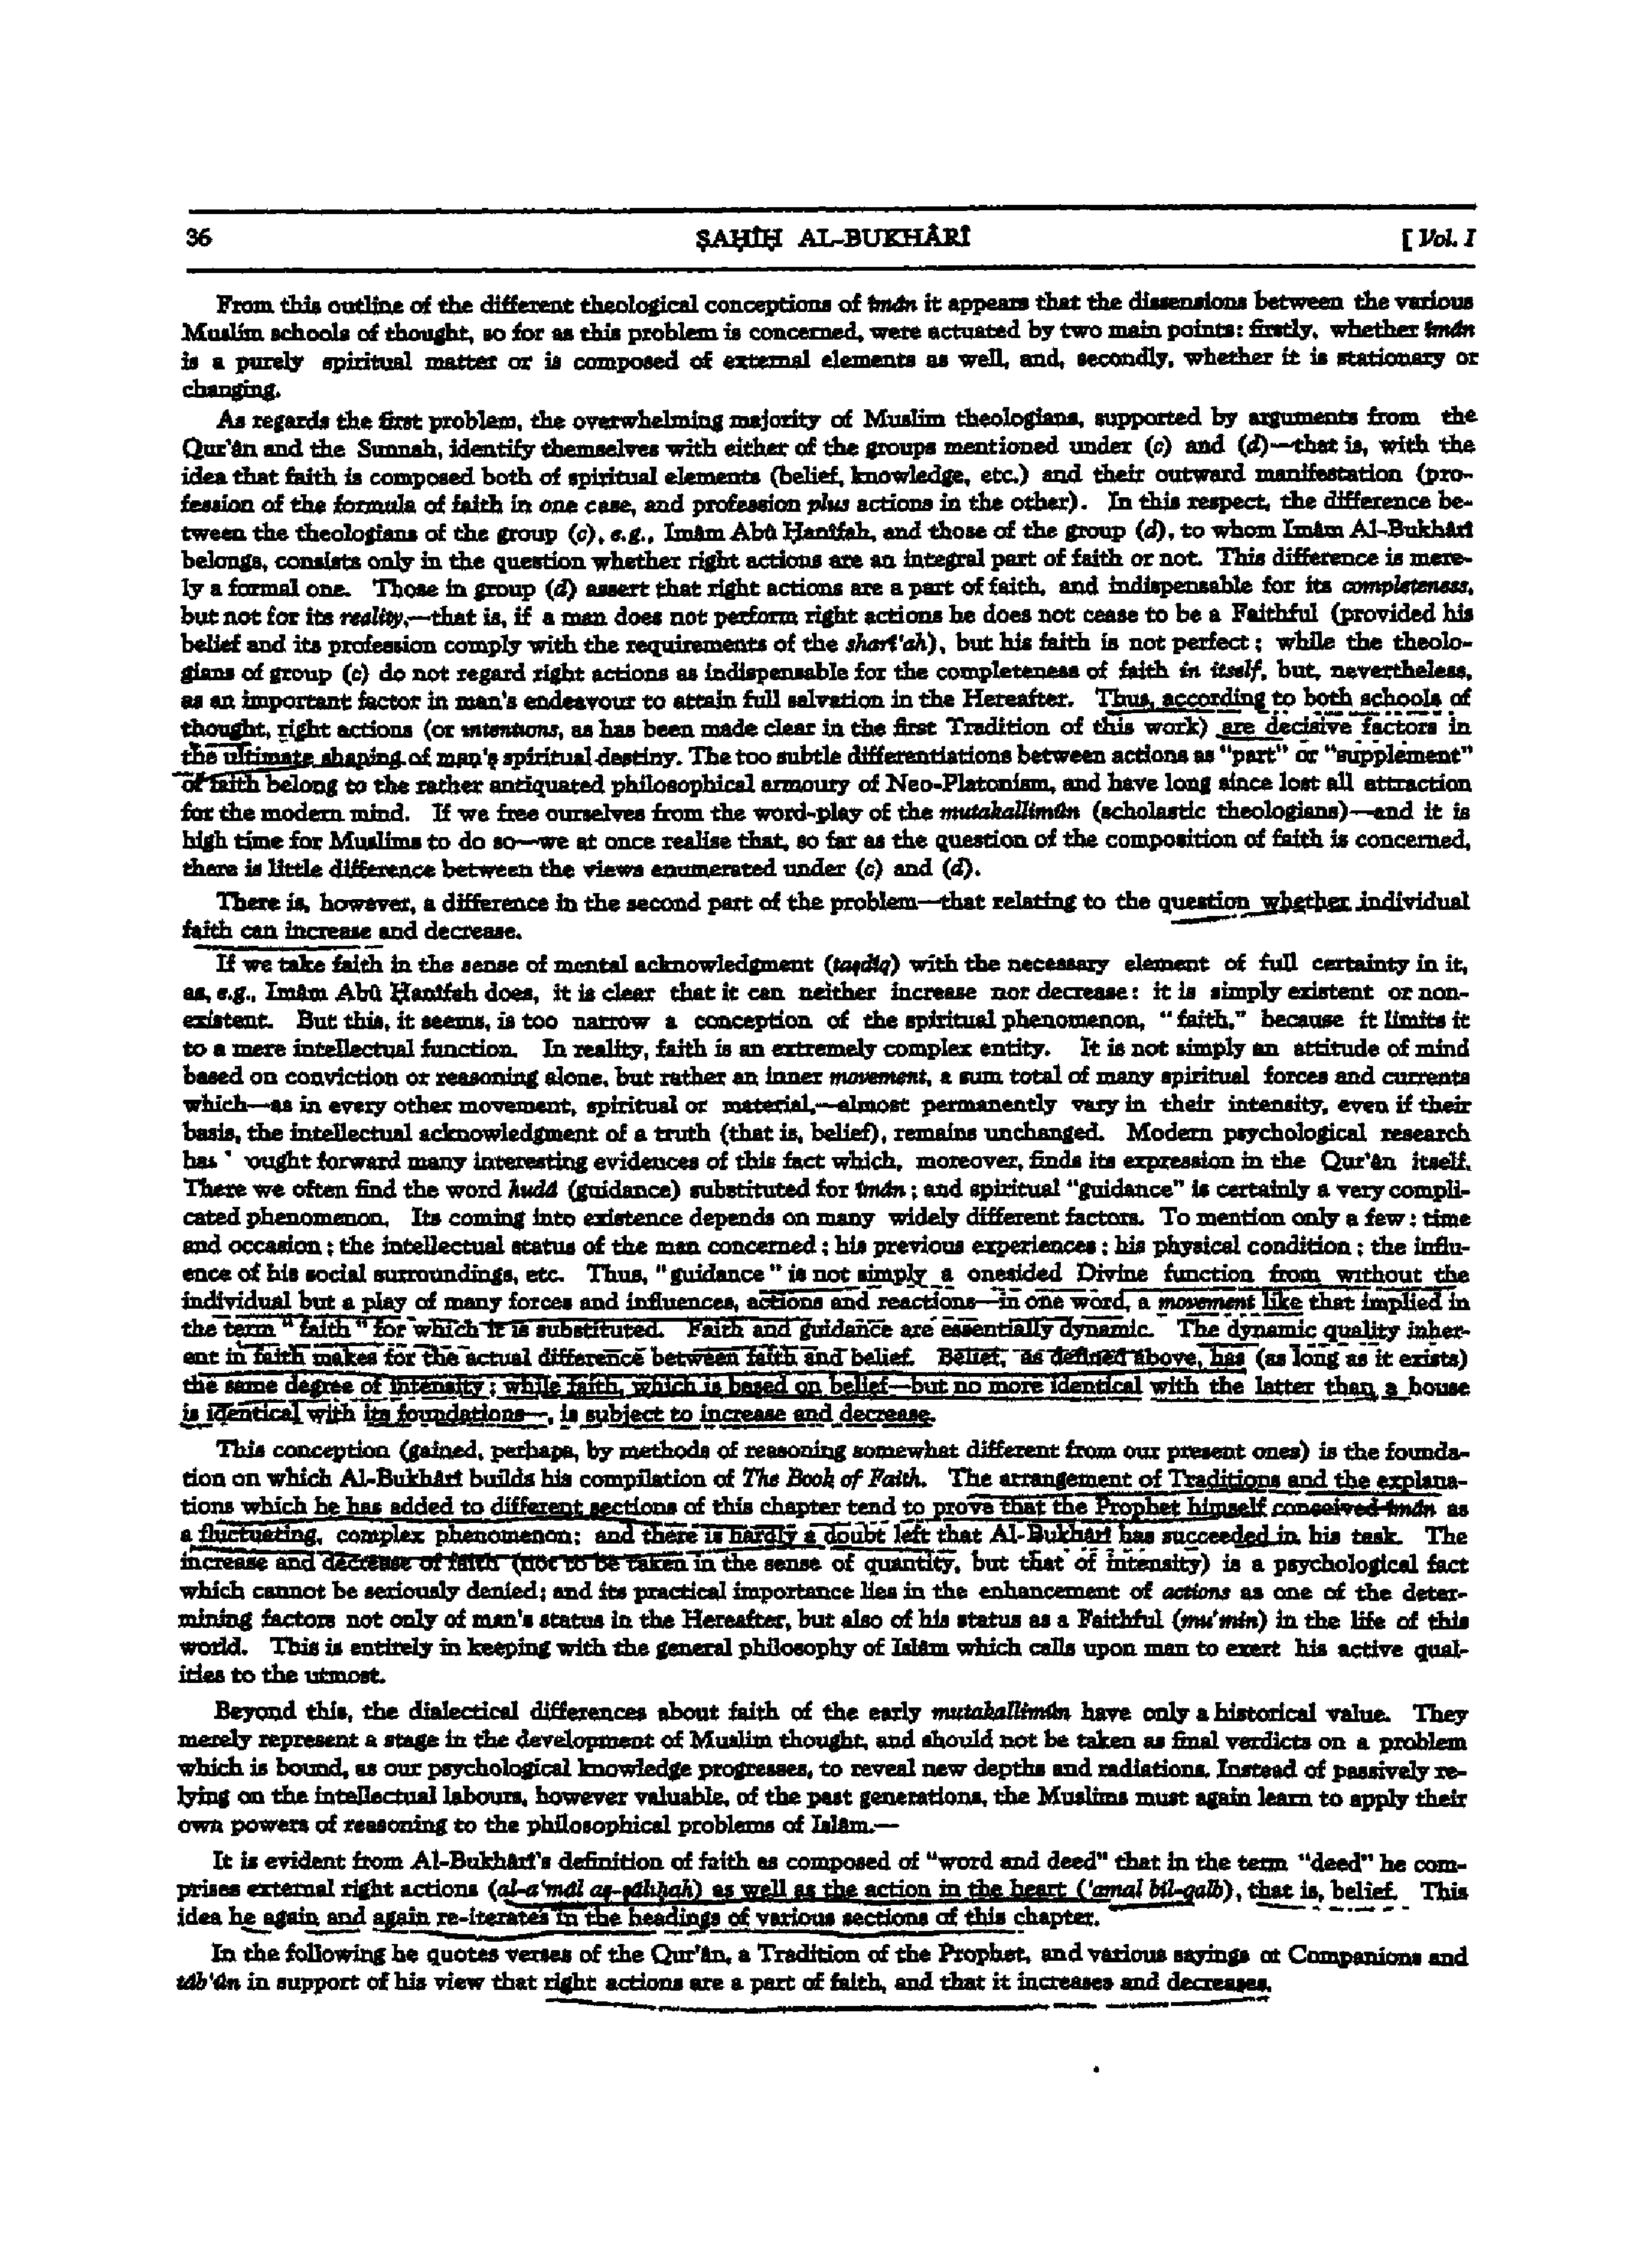 36
ṢAḤÎḤ AL-BUKHÂRÎ
[ Vol. I
From this outline of the different theological conceptions of îmân it appears that the dissensions between the various
Muslim schools of thought, so for as this problem is concerned, were actuated by two main points: firstly, whether îmân
is a purely spiritual matter or is composed of external elements as well, and, secondly, whether it is stationary or
changing.
As regards the first problem, the overwhelming majority of Muslim theologians, supported by arguments from the
Qur'ân and the Sunnah, identify themselves with either of the groups mentioned under (c) and (d)—that is, with the
idea that faith is composed both of spiritual elements (belief, knowledge, etc.) and their outward manifestation (pro-
fession of the formula of faith in one case, and profession plus actions in the other). In this respect, the difference be-
tween the theologians of the group (c), e.g., Imâm Abû Ḥanîfah, and those of the group (d), to whom Imâm Al-Bukhârî
belongs, consists only in the question whether right actions are an integral part of faith or not. This difference is mere-
ly a formal one. Those in group (d) assert that right actions are a part of faith, and indispensable for its completeness,
but not for its reality,—that is, if a man does not perform right actions he does not cease to be a Faithful (provided his
belief and its profession comply with the requirements of the sharî'ah), but his faith is not perfect; while the theolo-
gians of group (c) do not regard right actions as indispensable for the completeness of faith in itself, but, nevertheless,
as an important factor in man's endeavour to attain full salvation in the Hereafter. Thus, according to both schools of
thought, right actions (or intentions, as has been made clear in the first Tradition of this work) are decisive factors in
the ultimate shaping of man's spiritual destiny. The too subtle differentiations between actions as "part" or "supplement"
of faith belong to the rather antiquated philosophical armoury of Neo-Platonism, and have long since lost all attraction
for the modern mind. If we free ourselves from the word-play of the mutakallimûn (scholastic theologians)—and it is
high time for Muslims to do so—we at once realise that, so far as the question of the composition of faith is concerned,
there is little difference between the views enumerated under (c) and (d).
There is, however, a difference in the second part of the problem—that relating to the question whether individual
faith can increase and decrease.
If we take faith in the sense of mental acknowledgment (taṣdîq) with the necessary element of full certainty in it,
as, e.g., Imâm Abû Ḥanîfah does, it is clear that it can neither increase nor decrease: it is simply existent or non-
existent. But this, it seems, is too narrow a conception of the spiritual phenomenon, "faith," because it limits it
to a mere intellectual function. In reality, faith is an extremely complex entity. It is not simply an attitude of mind
based on conviction or reasoning alone, but rather an inner movement, a sum total of many spiritual forces and currents
which—as in every other movement, spiritual or material,—almost permanently vary in their intensity, even if their
basis, the intellectual acknowledgment of a truth (that is, belief), remains unchanged. Modern psychological research
has ought forward many interesting evidences of this fact which, moreover, finds its expression in the Qur'ân itself.
There we often find the word hudâ (guidance) substituted for îmân; and spiritual "guidance" is certainly a very compli-
cated phenomenon. Its coming into existence depends on many widely different factors. To mention only a few: time
and occasion; the intellectual status of the man concerned; his previous experiences; his physical condition; the influ-
ence of his social surroundings, etc. Thus, "guidance" is not simply a onesided Divine function from without the
individual but a play of many forces and influences, actions and reactions—in one word, a movement like that implied in
the term "faith" for which it is substituted. Faith and guidance are essentially dynamic. The dynamic quality inher-
ent in faith makes for the actual difference between faith and belief. Belief, as defined above, has (as long as it exists)
the same degree of intensity; while faith, which is based on belief—but no more identical with the latter than a house
is identical with its foundations—, is subject to increase and decrease.
This conception (gained, perhaps, by methods of reasoning somewhat different from our present ones) is the founda-
tion on which Al-Bukhârî builds his compilation of The Book of Faith. The arrangement of Traditions and the explana-
tions which he has added to different sections of this chapter tend to prove that the Prophet himself conceived îmân as
a fluctuating, complex phenomenon; and there is hardly a doubt left that Al-Bukhârî has succeeded in his task. The
increase and decrease of faith (not to be taken in the sense of quantity, but that of intensity) is a psychological fact
which cannot be seriously denied; and its practical importance lies in the enhancement of actions as one of the deter-
mining factors not only of man's status in the Hereafter, but also of his status as a Faithful (mu'min) in the life of this
world. This is entirely in keeping with the general philosophy of Islâm which calls upon man to exert his active qual-
ities to the utmost.
Beyond this, the dialectical differences about faith of the early mutakallimûn have only a historical value. They
merely represent a stage in the development of Muslim thought, and should not be taken as final verdicts on a problem
which is bound, as our psychological knowledge progresses, to reveal new depths and radiations. Instead of passively re-
lying on the intellectual labours, however valuable, of the past generations, the Muslims must again learn to apply their
own powers of reasoning to the philosophical problems of Islâm.—
It is evident from Al-Bukhârî's definition of faith as composed of "word and deed" that in the term "deed" he com-
prises external right actions (al-a'mâl aṣ-ṣâliḥah) as well as the action in the heart ('amal bil-qalb), that is, belief. This
idea he again and again re-iterates in the headings of various sections of this chapter.
In the following he quotes verses of the Qur'ân, a Tradition of the Prophet, and various sayings of Companions and
tâb'ûn in support of his view that right actions are a part of faith, and that it increases and decreases.